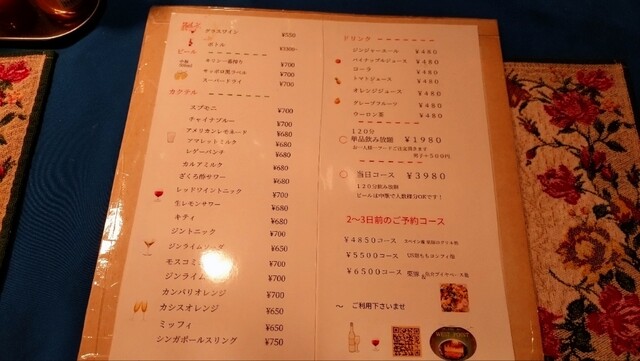 グラスワイン ¥550
ボトル ¥3300~
ビール
中瓶 500ml キリン一番搾り ¥700
サッポロ黒ラベル ¥700
スーパードライ ¥700
カクテル
スプモニ ¥700
チャイナブルー ¥700
アメリカンレモネード ¥680
アマレットミルク ¥680
レゲーパンチ ¥680
カルアミルク ¥680
ざくろ酢サワー ¥680
レッドワイントニック ¥700
生レモンサワー ¥680
キティ ¥680
ジントニック ¥700
ジンライムソーダ ¥650
モスコミ ¥700
ジンライム ¥700
カンパリオレンジ ¥700
カシスオレンジ ¥650
ミッフィ ¥650
シンガポールスリング ¥750
ドリンク
ジンジャーエール ¥480
パイナップルジュース ¥480
コーラ ¥480
トマトジュース ¥480
オレンジジュース ¥480
グレープフルーツ ¥480
ウーロン茶 ¥480
120分
単品飲み放題 ¥1980
お一人様一フードご注文頂きます
当日コース ¥3980
120分飲み放題
ビールは中瓶で人数様分OKです!
2~3日前のご予約コース
¥4850コース
¥5500コース
¥6500コース
~ ご利用下さいませ